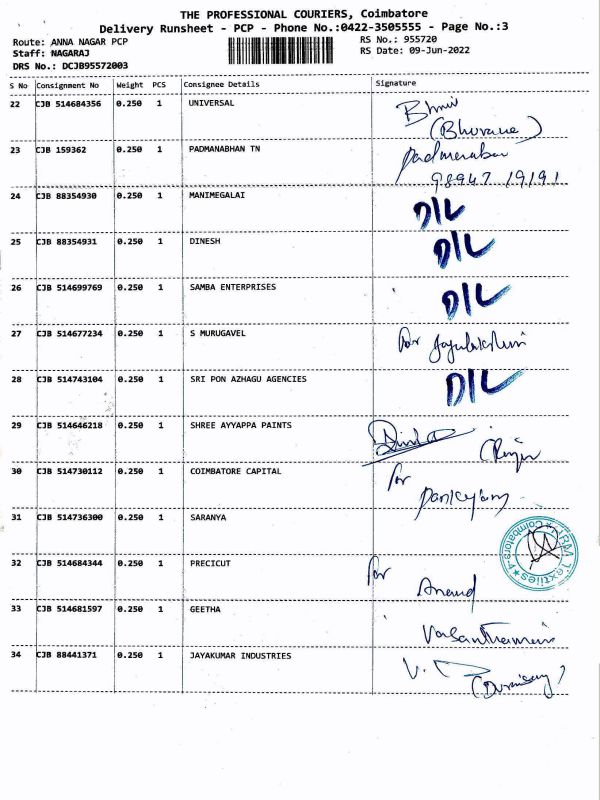 THE PROFESSIONAL COURIERS, Coimbatore
Delivery Runsheet - PCP - Phone No.:0422-3505555 - Page No.:3
Route: ANNA NAGAR PCP
RS No.: 955720
Staff: NAGARAJ
RS Date: 09-Jun-2022
DRS No.: DCJB95572003
S No Consignment No Weight PCS Consignee Details Signature
22 CJB 514684356 0.250 1 UNIVERSAL
(Bhuvana)
23 CJB 159362 0.250 1 PADMANABHAN TN
98947 19191
24 CJB 88354930 0.250 1 MANIMEGALAI D/L
25 CJB 88354931 0.250 1 DINESH D/L
26 CJB 514699769 0.250 1 SAMBA ENTERPRISES D/L
27 CJB 514677234 0.250 1 S MURUGAVEL for
28 CJB 514743104 0.250 1 SRI PON AZHAGU AGENCIES D/L
29 CJB 514646218 0.250 1 SHREE AYYAPPA PAINTS
30 CJB 514730112 0.250 1 COIMBATORE CAPITAL for
31 CJB 514736300 0.250 1 SARANYA
32 CJB 514684344 0.250 1 PRECICUT for
Anand
33 CJB 514681597 0.250 1 GEETHA
34 CJB 88441371 0.250 1 JAYAKUMAR INDUSTRIES